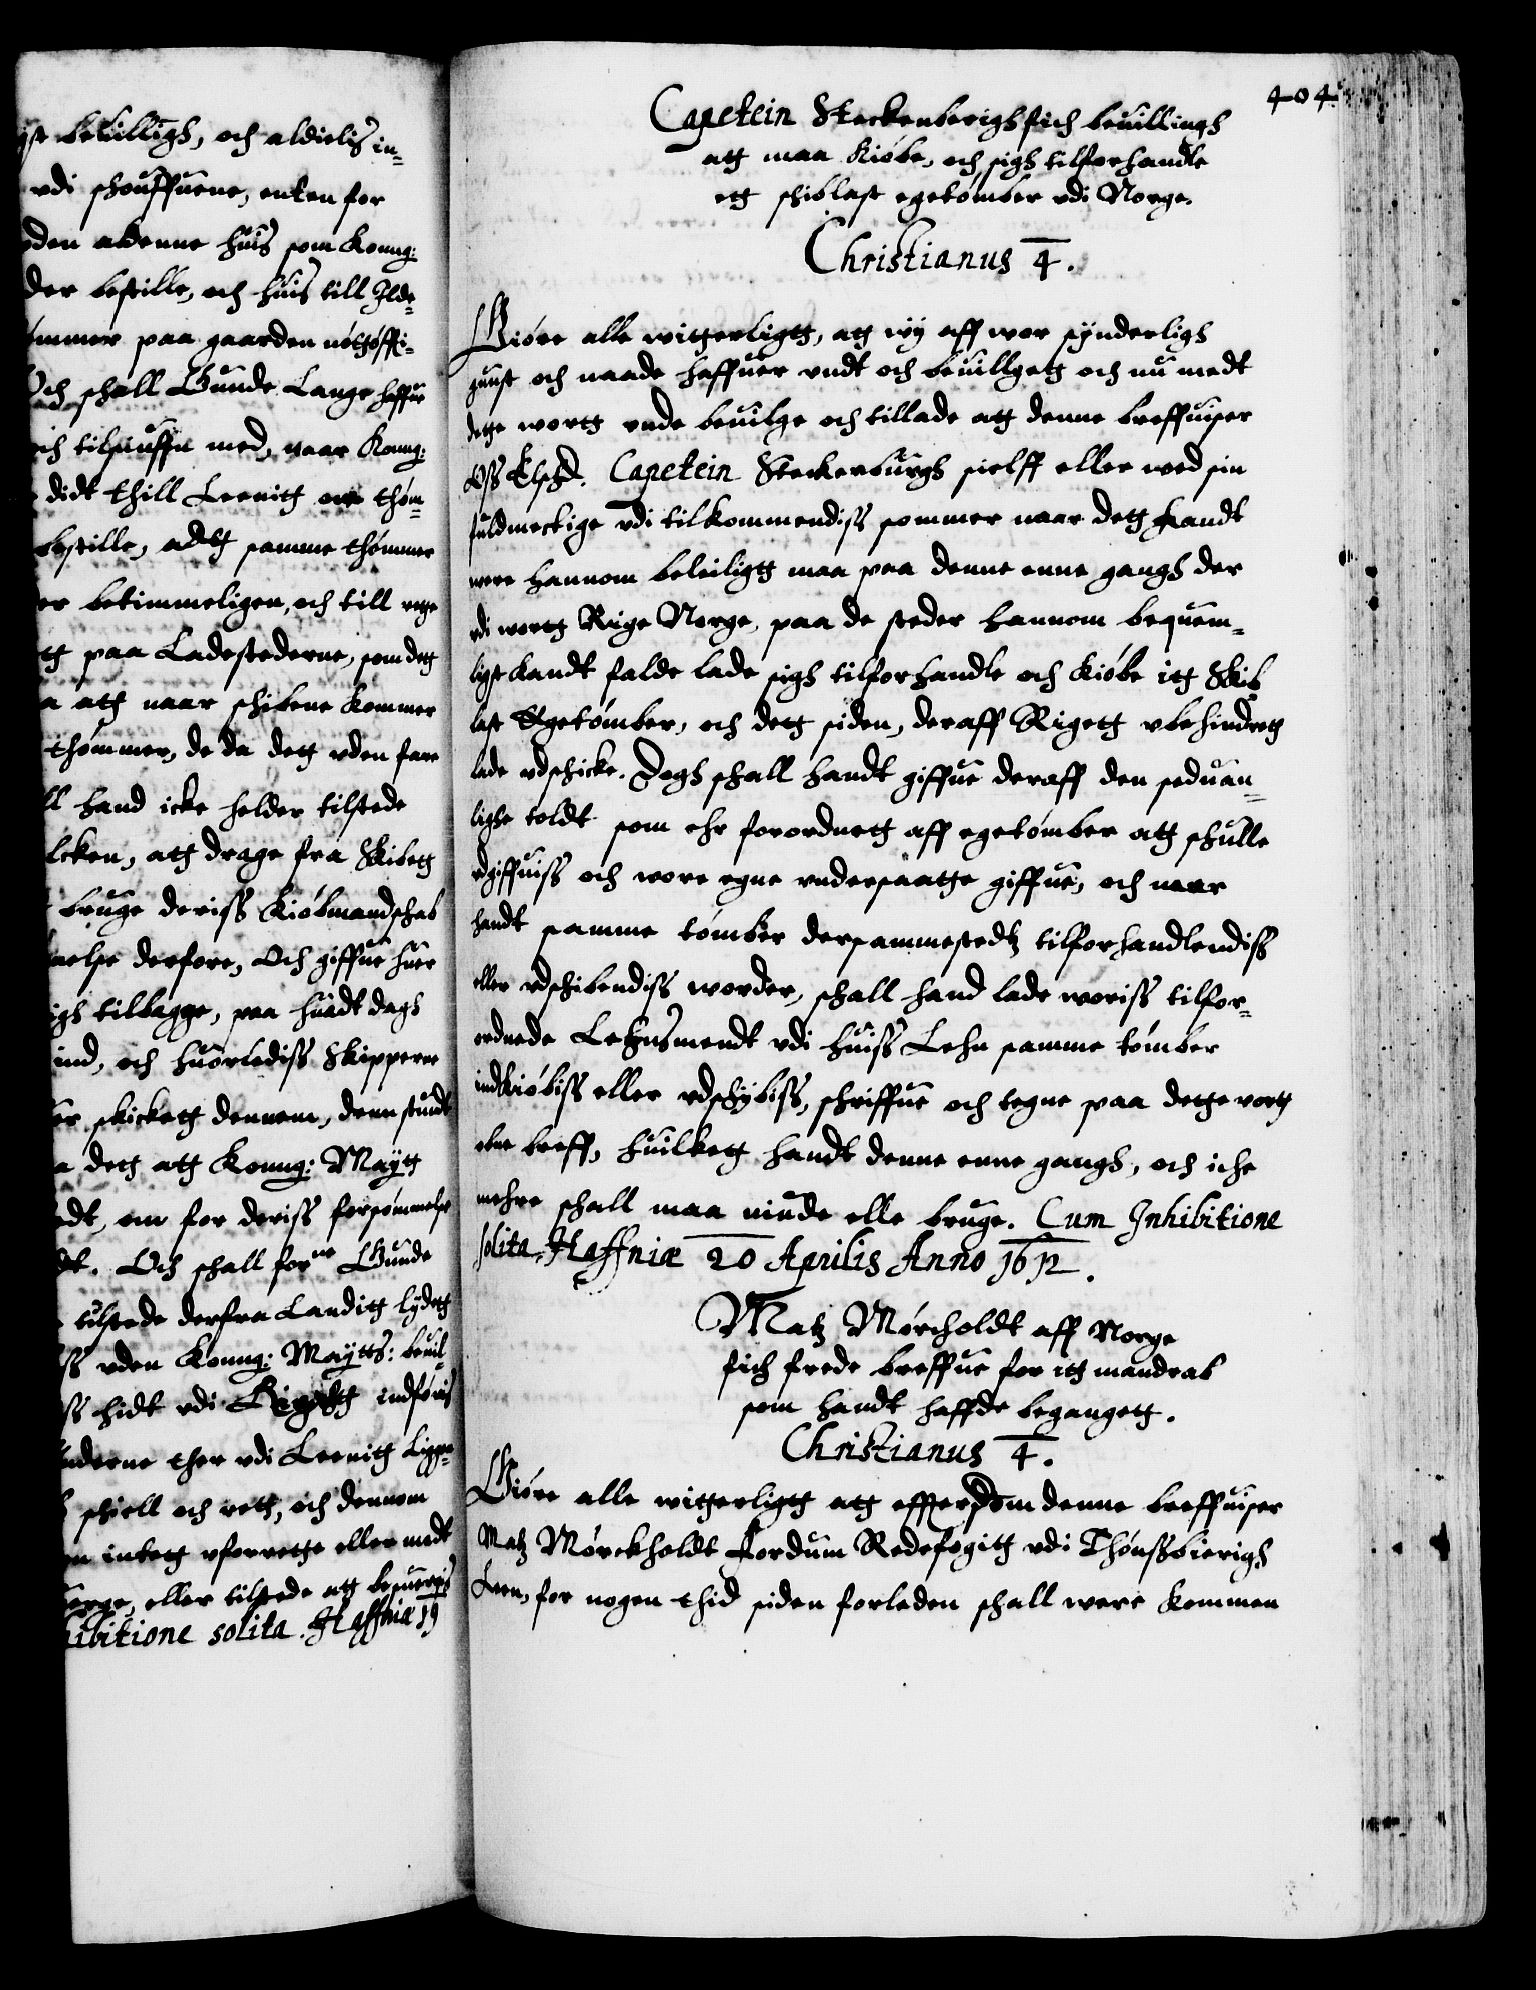 bevilligh, och aldielis in-
vdi schouffuene, enten for
den adenne huis som Kong:
der bestille, och huis till Ilde-
paa gaarden nøtgøffi-
Och schall Gunde Lange haffue
tilsuffn med, naar Kong:
didt thill Leenitt om thøm-
bestille, adtt samme thømmer
betimmeligen, och till rette
paa Ladestederne, som dett
att naar schibene kommer
thømmer, de da dett vden fare
hand icke helder tilstede
att drage fra Skibett
bruge deriss Kiøbmandschab
derfore, Och giffue huer
tilbagge, paa huadt dagh
ind, och huorlediss Skipperne
skickett dennem, denn stundt
dett att Konng: Maytt
om for deriss forsømmelse
Och schall forne Gunde
tilstede derfra Landitt lydett
vden Konng: Maytts: beuil-
hidt vdi Rigett indføris
ther vdi Leenitt Ligge-
schiell och rett, och dennom
intett vforrette eller medt
eller tilstede att besueris
solita. Haffniæ 19
404
Capetein Steckenberigh fich beuillingh
att maa kiøbe, och sigh tilforhandle
ett schiblast egetømber vdi Norge.
Christianus 4.
Giøre alle witterligtt, att wy aff wor synderligh
gunst och naade haffuer vndt och beuillgett och nu medt
dette wortt vnde beuilge och tillade att denne breffuiser
Oss Elschd. Capetein Steckerburgh sielff eller wed sin
fuldmectige vdi tilkommendiss sommer naar dett handt
were hannom beleiligtt maa paa denne enne gangh der
vdi wortt Rige Norge, paa de steder hannom bequem-
ligst kandt falde lade sigh tilforhandle och kiøbe itt Skib
last Egetømber, och dett siden, deraff Rigett vbehindrett
lade vdschicke. Dogh schall handt giffue deraff den seduan-
lighe toldt som ehr forordnett aff egetømber att schulle
vdgiffuiss och wore egne vndersaatte giffue, och naar
handt samme tømber dersammestedtz tilforhandlendiss
eller vdschibendiss worder, schall hand lade woriss tilfor-
ordnede Lehnsmendt vdi huiss Lehn samme tømber
indkiøbiss eller vdschybiss, schriffue och tegne paa dette vortt
obne breff, huilkett handt denne enne gangh, och iche
mehre schall maa niude elle bruge. Cum Inhibitione
solita. Haffniæ 20 Aprilis Anno 1612.
Matz Mørcholdt aff Norge
fich frede breffue for itt mandrab
som handt haffde begangett.
Christianus 4.
Giøre alle witterligtt att effterdom denne breffuiser
Matz Mørckholdt fordum Redefogitt vdi Thønssbierigh
Leen, for nogen thid siden forleden schall were kommen